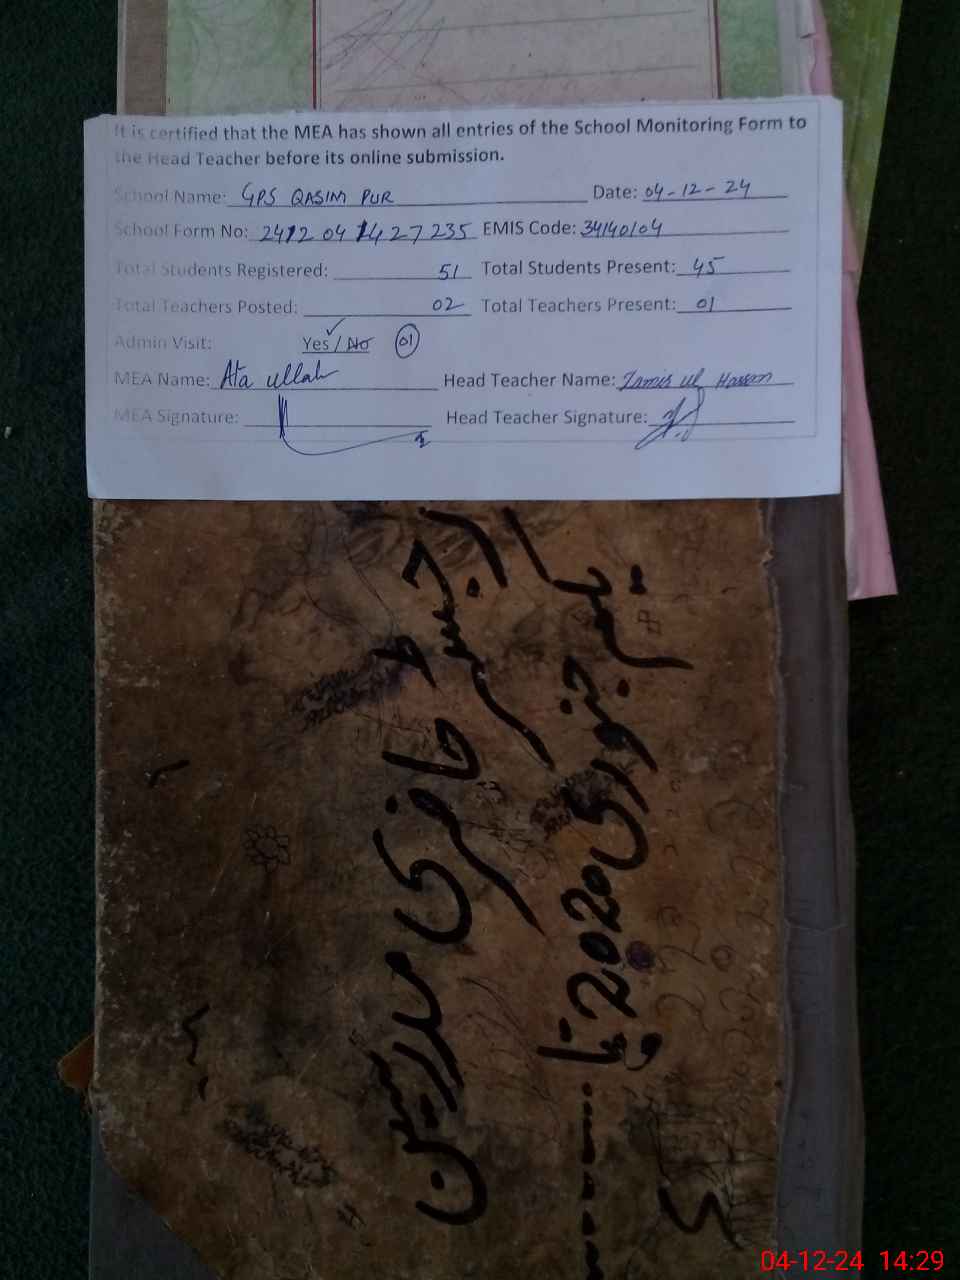 It is certified that the MEA has shown all entries of the School Monitoring Form to
the Head Teacher before its online submission.
School Name: GPS QASIM PUR Date: 04-12-24
School Form No: 2412041427235 EMIS Code: 34140104
Total Students Registered: 51 Total Students Present: 45
Total Teachers Posted: 02 Total Teachers Present: 01
Admin Visit: Yes / No 01
MEA Name: Ata ullah Head Teacher Name: Zamis ul Hassan
MEA Signature: Head Teacher Signature:
رجسٹر حاضری مدرسین
یکم جنوری 2020 تا
04-12-24 14:29